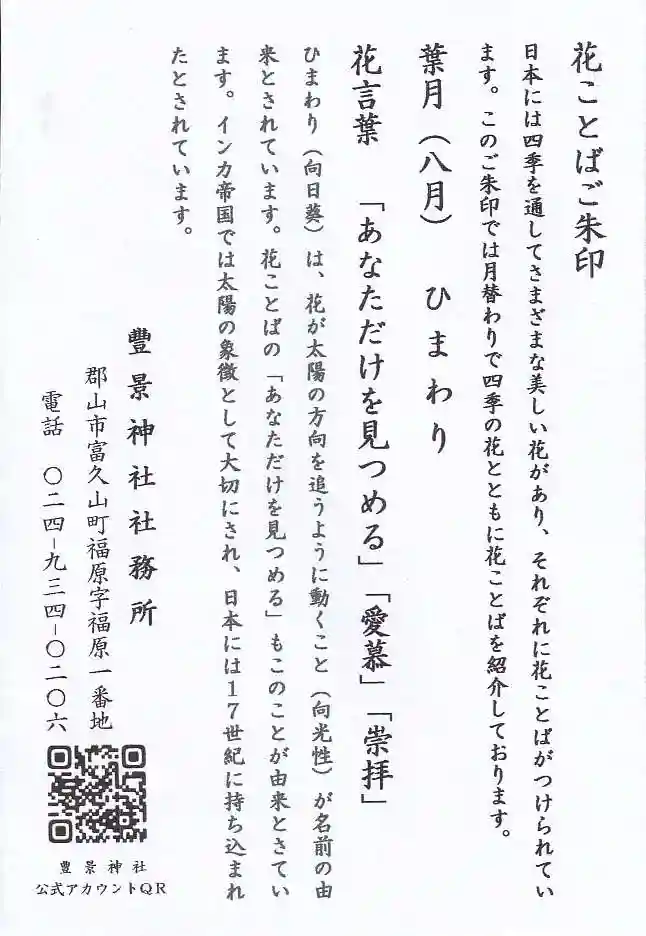 花ことばご朱印
日本には四季を通してさまざまな美しい花があり、それぞれに花ことばがつけられてい
ます。このご朱印では月替わりで四季の花とともに花ことばを紹介しております。
葉月（八月）　ひまわり
花言葉　「あなただけを見つめる」「愛慕」「崇拝」
ひまわり（向日葵）は、花が太陽の方向を追うように動くこと（向光性）が名前の由
来とされています。花ことばの「あなただけを見つめる」もこのことが由来とさてい
ます。インカ帝国では太陽の象徴として大切にされ、日本には17世紀に持ち込まれ
たとされています。
豊景神社社務所
郡山市富久山町福原字福原一番地
電話　〇二四−九三四−〇二〇六
豊景神社
公式アカウントQR